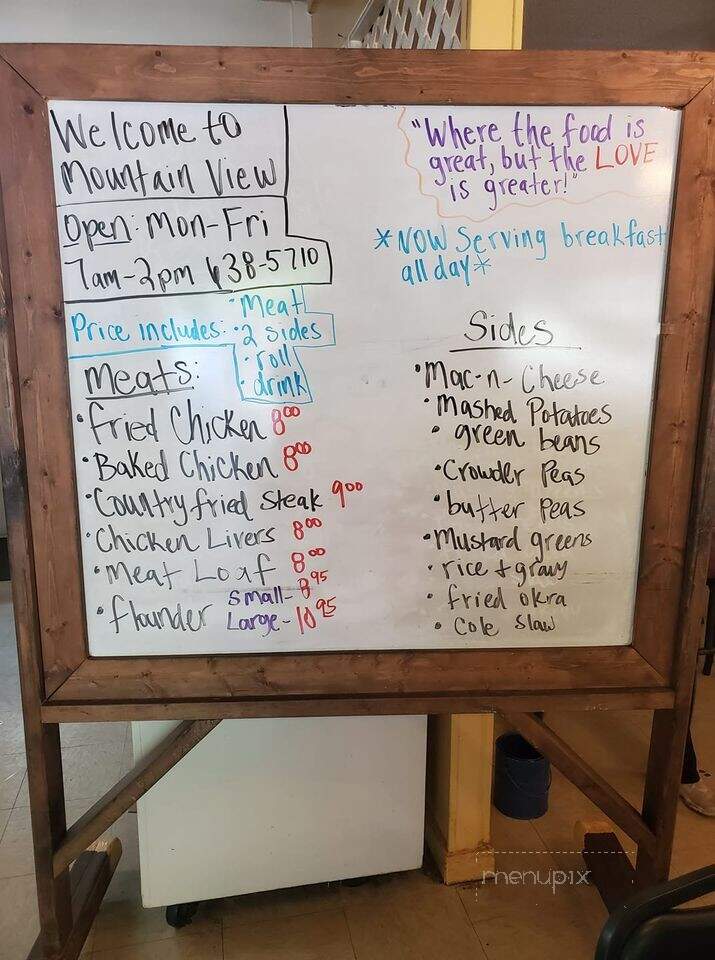 Welcome to
Mountain View
Open: Mon-Fri
7am-2pm 638-5710
Price includes: •Meat
•2 sides
•roll
•drink
Meats:
•Fried Chicken 8⁰⁰
•Baked Chicken 8⁰⁰
•Country fried Steak 9⁰⁰
•Chicken Livers 8⁰⁰
•Meat Loaf 8⁰⁰
•flounder Small- 8⁹⁵
Large- 10⁹⁵
"Where the food is
great, but the LOVE
is greater!"
*NOW Serving breakfast
all day*
Sides
•Mac-n-Cheese
•Mashed Potatoes
•green beans
•Crowder Peas
•butter Peas
•Mustard greens
•rice + gravy
•fried okra
•Cole Slaw
menupix